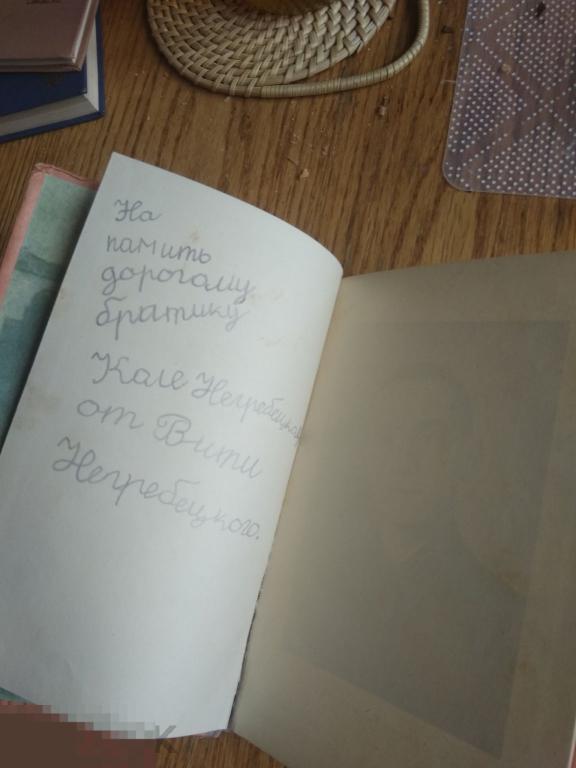 На
памить
дорогому
братику
Коле Негребецкому
от Вити
Негребецкого.